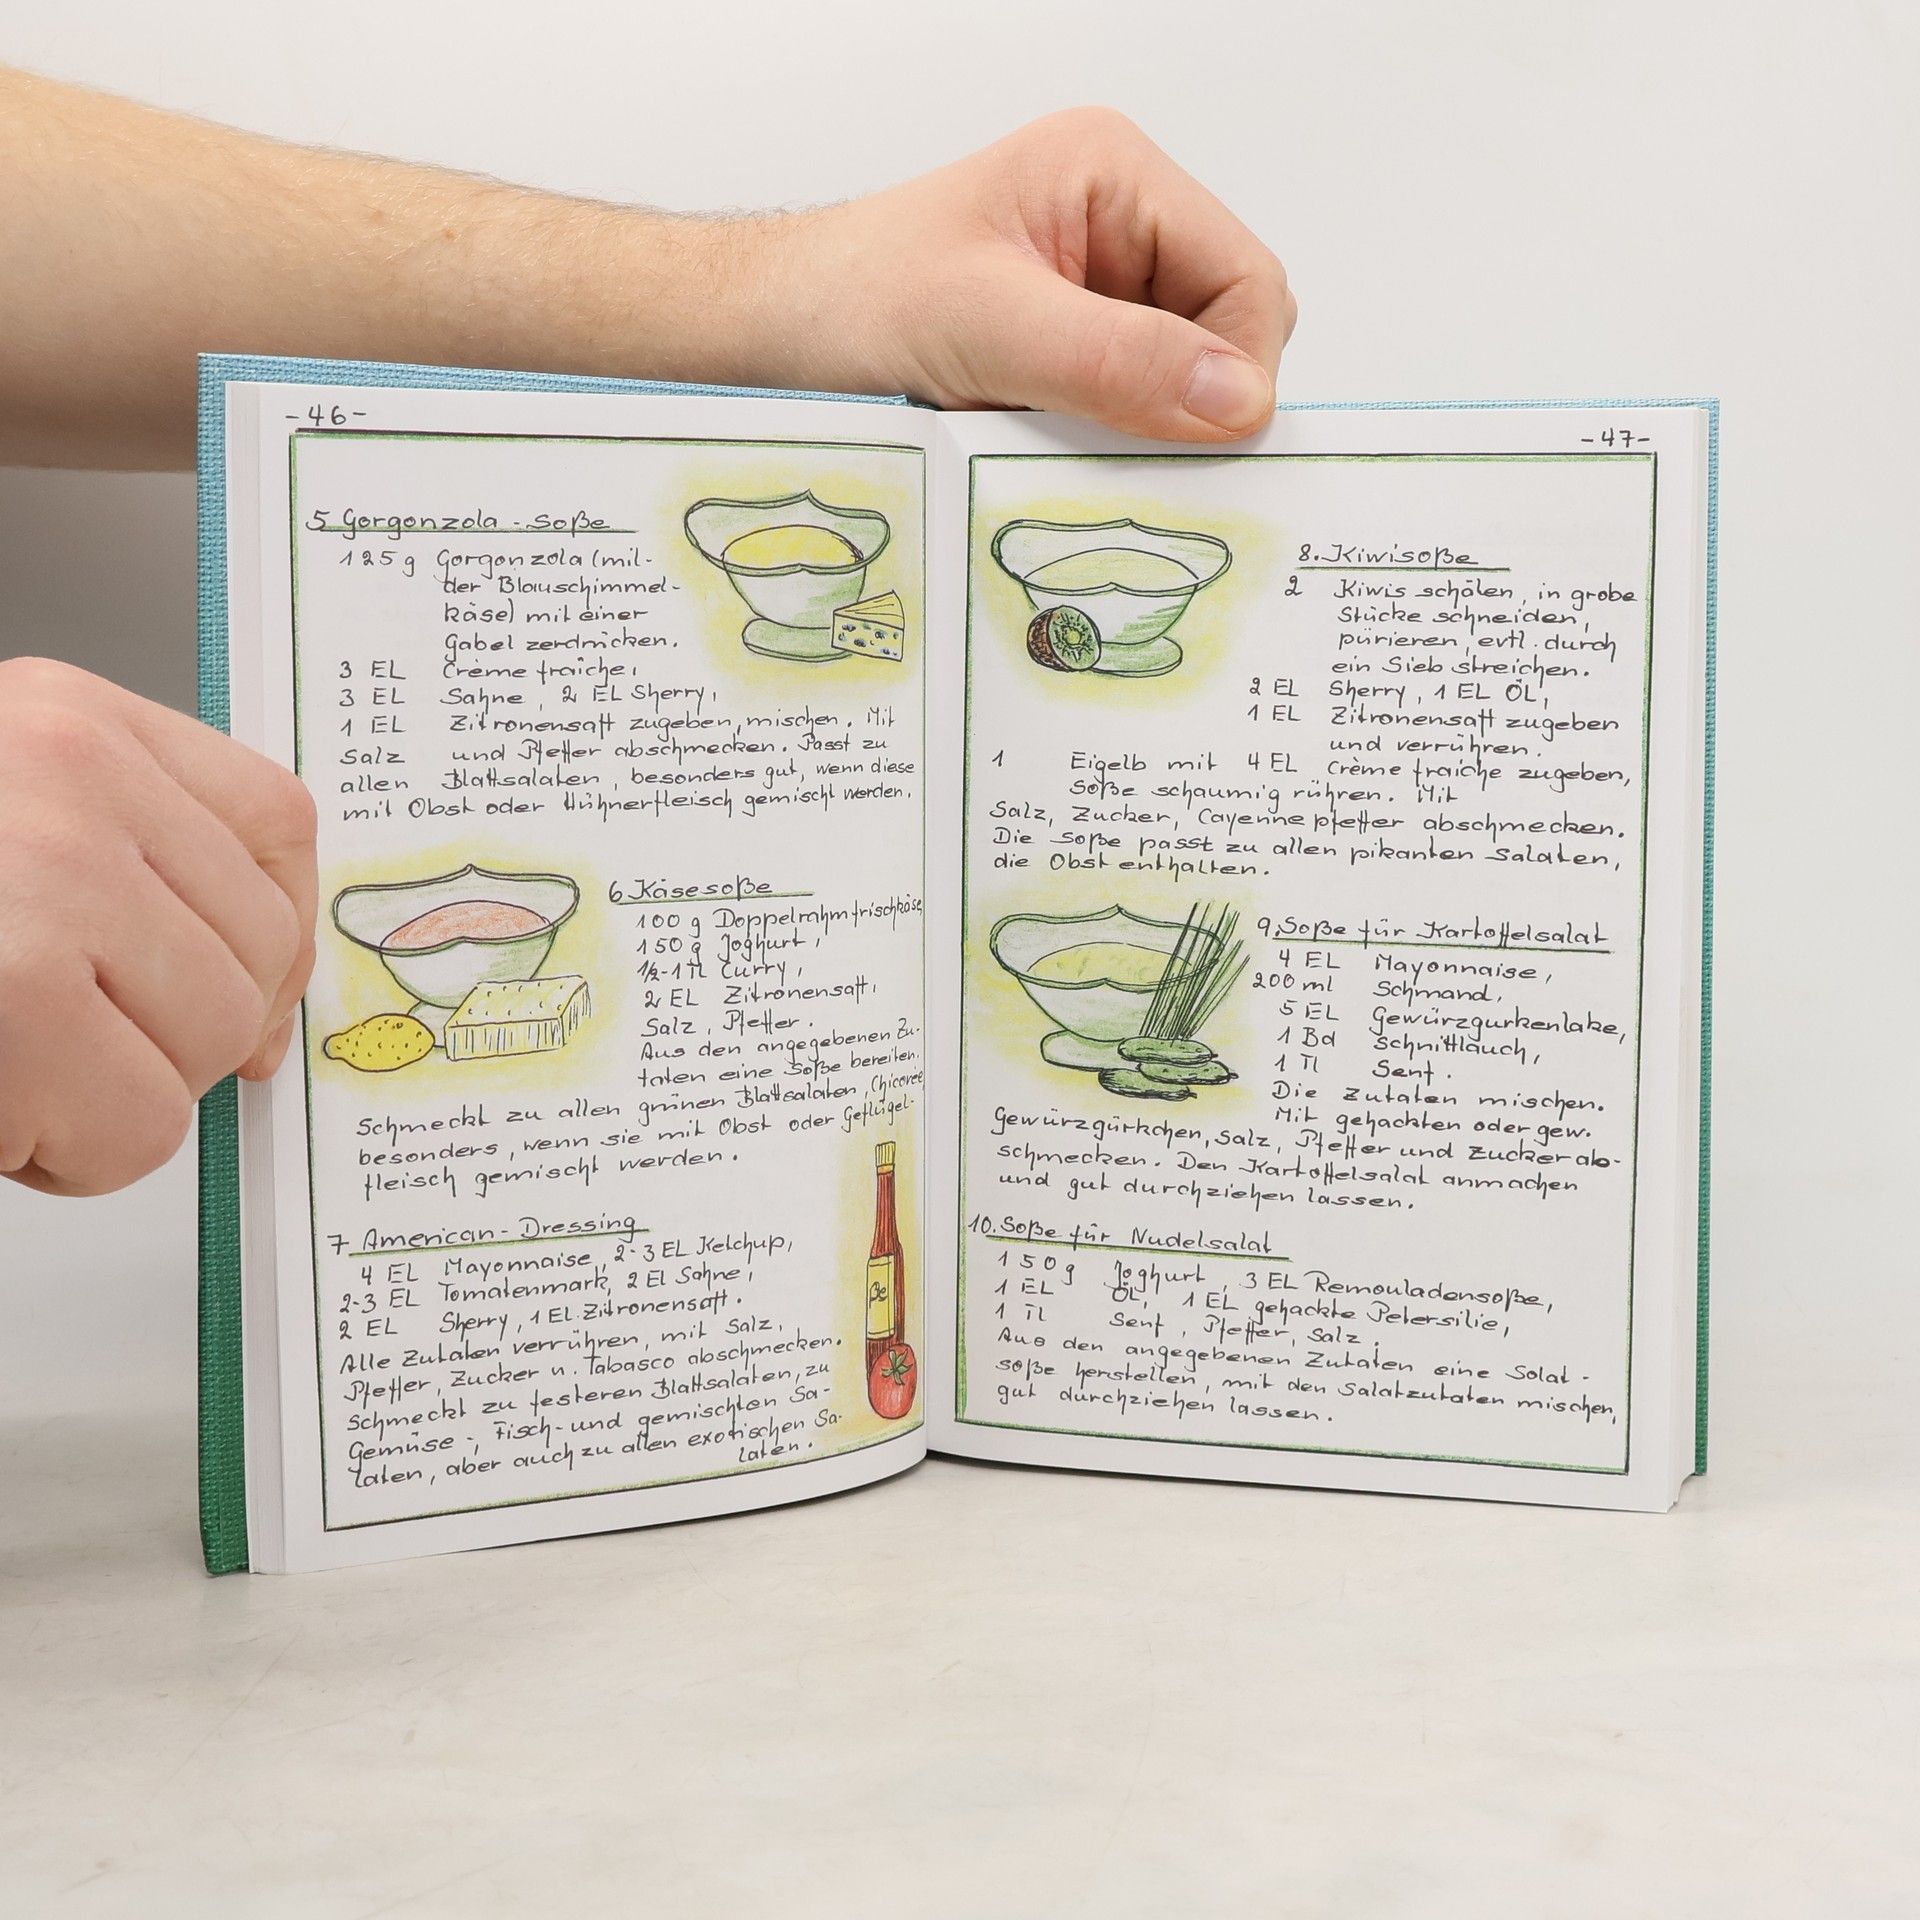 -46-
5 Gorgonzola-Soße
125 g Gorgonzola (mil-
der Blauschimmel-
käse) mit einer
Gabel zerdrücken.
3 EL Crème fraîche,
3 EL Sahne, 2 EL Sherry,
1 EL Zitronensaft zugeben, mischen. Mit
Salz und Pfeffer abschmecken. Passt zu
allen Blattsalaten, besonders gut, wenn diese
mit Obst oder Hühnerfleisch gemischt werden.
6 Käsesoße
100 g Doppelrahmfrischkäse,
150 g Joghurt,
1/2-1 Tl Curry,
2 EL Zitronensaft,
Salz, Pfeffer.
Aus den angegebenen Zu-
taten eine Soße bereiten.
Schmeckt zu allen grünen Blattsalaten, Chicorée,
besonders, wenn sie mit Obst oder Geflügel-
fleisch gemischt werden.
7 American-Dressing
4 EL Mayonnaise, 2-3 EL Ketchup,
2-3 EL Tomatenmark, 2 El Sahne,
2 EL Sherry, 1 EL Zitronensaft.
Alle Zutaten verrühren, mit Salz,
Pfeffer, Zucker u. Tabasco abschmecken.
Schmeckt zu festeren Blattsalaten, zu
Gemüse-, Fisch- und gemischten Sa-
laten, aber auch zu allen exotischen Sa-
laten.
Be
-47-
8. Kiwisoße
2 Kiwis schälen, in grobe
Stücke schneiden,
pürieren, evtl. durch
ein Sieb streichen.
2 EL Sherry, 1 EL ÖL,
1 EL Zitronensaft zugeben
und verrühren.
1 Eigelb mit 4 EL Crème fraiche zugeben,
Soße schaumig rühren. Mit
Salz, Zucker, Cayennepfeffer abschmecken.
Die Soße passt zu allen pikanten Salaten,
die Obst enthalten.
9. Soße für Kartoffelsalat
4 EL Mayonnaise,
200 ml Schmand,
5 EL Gewürzgurkenlake,
1 Bd Schnittlauch,
1 Tl Senf.
Die Zutaten mischen.
Mit gehackten oder gew.
Gewürzgürkchen, Salz, Pfeffer und Zucker ab-
schmecken. Den Kartoffelsalat anmachen
und gut durchziehen lassen.
10. Soße für Nudelsalat
150 g Joghurt, 3 EL Remouladensoße,
1 EL ÖL, 1 EL gehackte Petersilie,
1 Tl Senf, Pfeffer, Salz.
Aus den angegebenen Zutaten eine Salat-
soße herstellen, mit den Salatzutaten mischen,
gut durchziehen lassen.